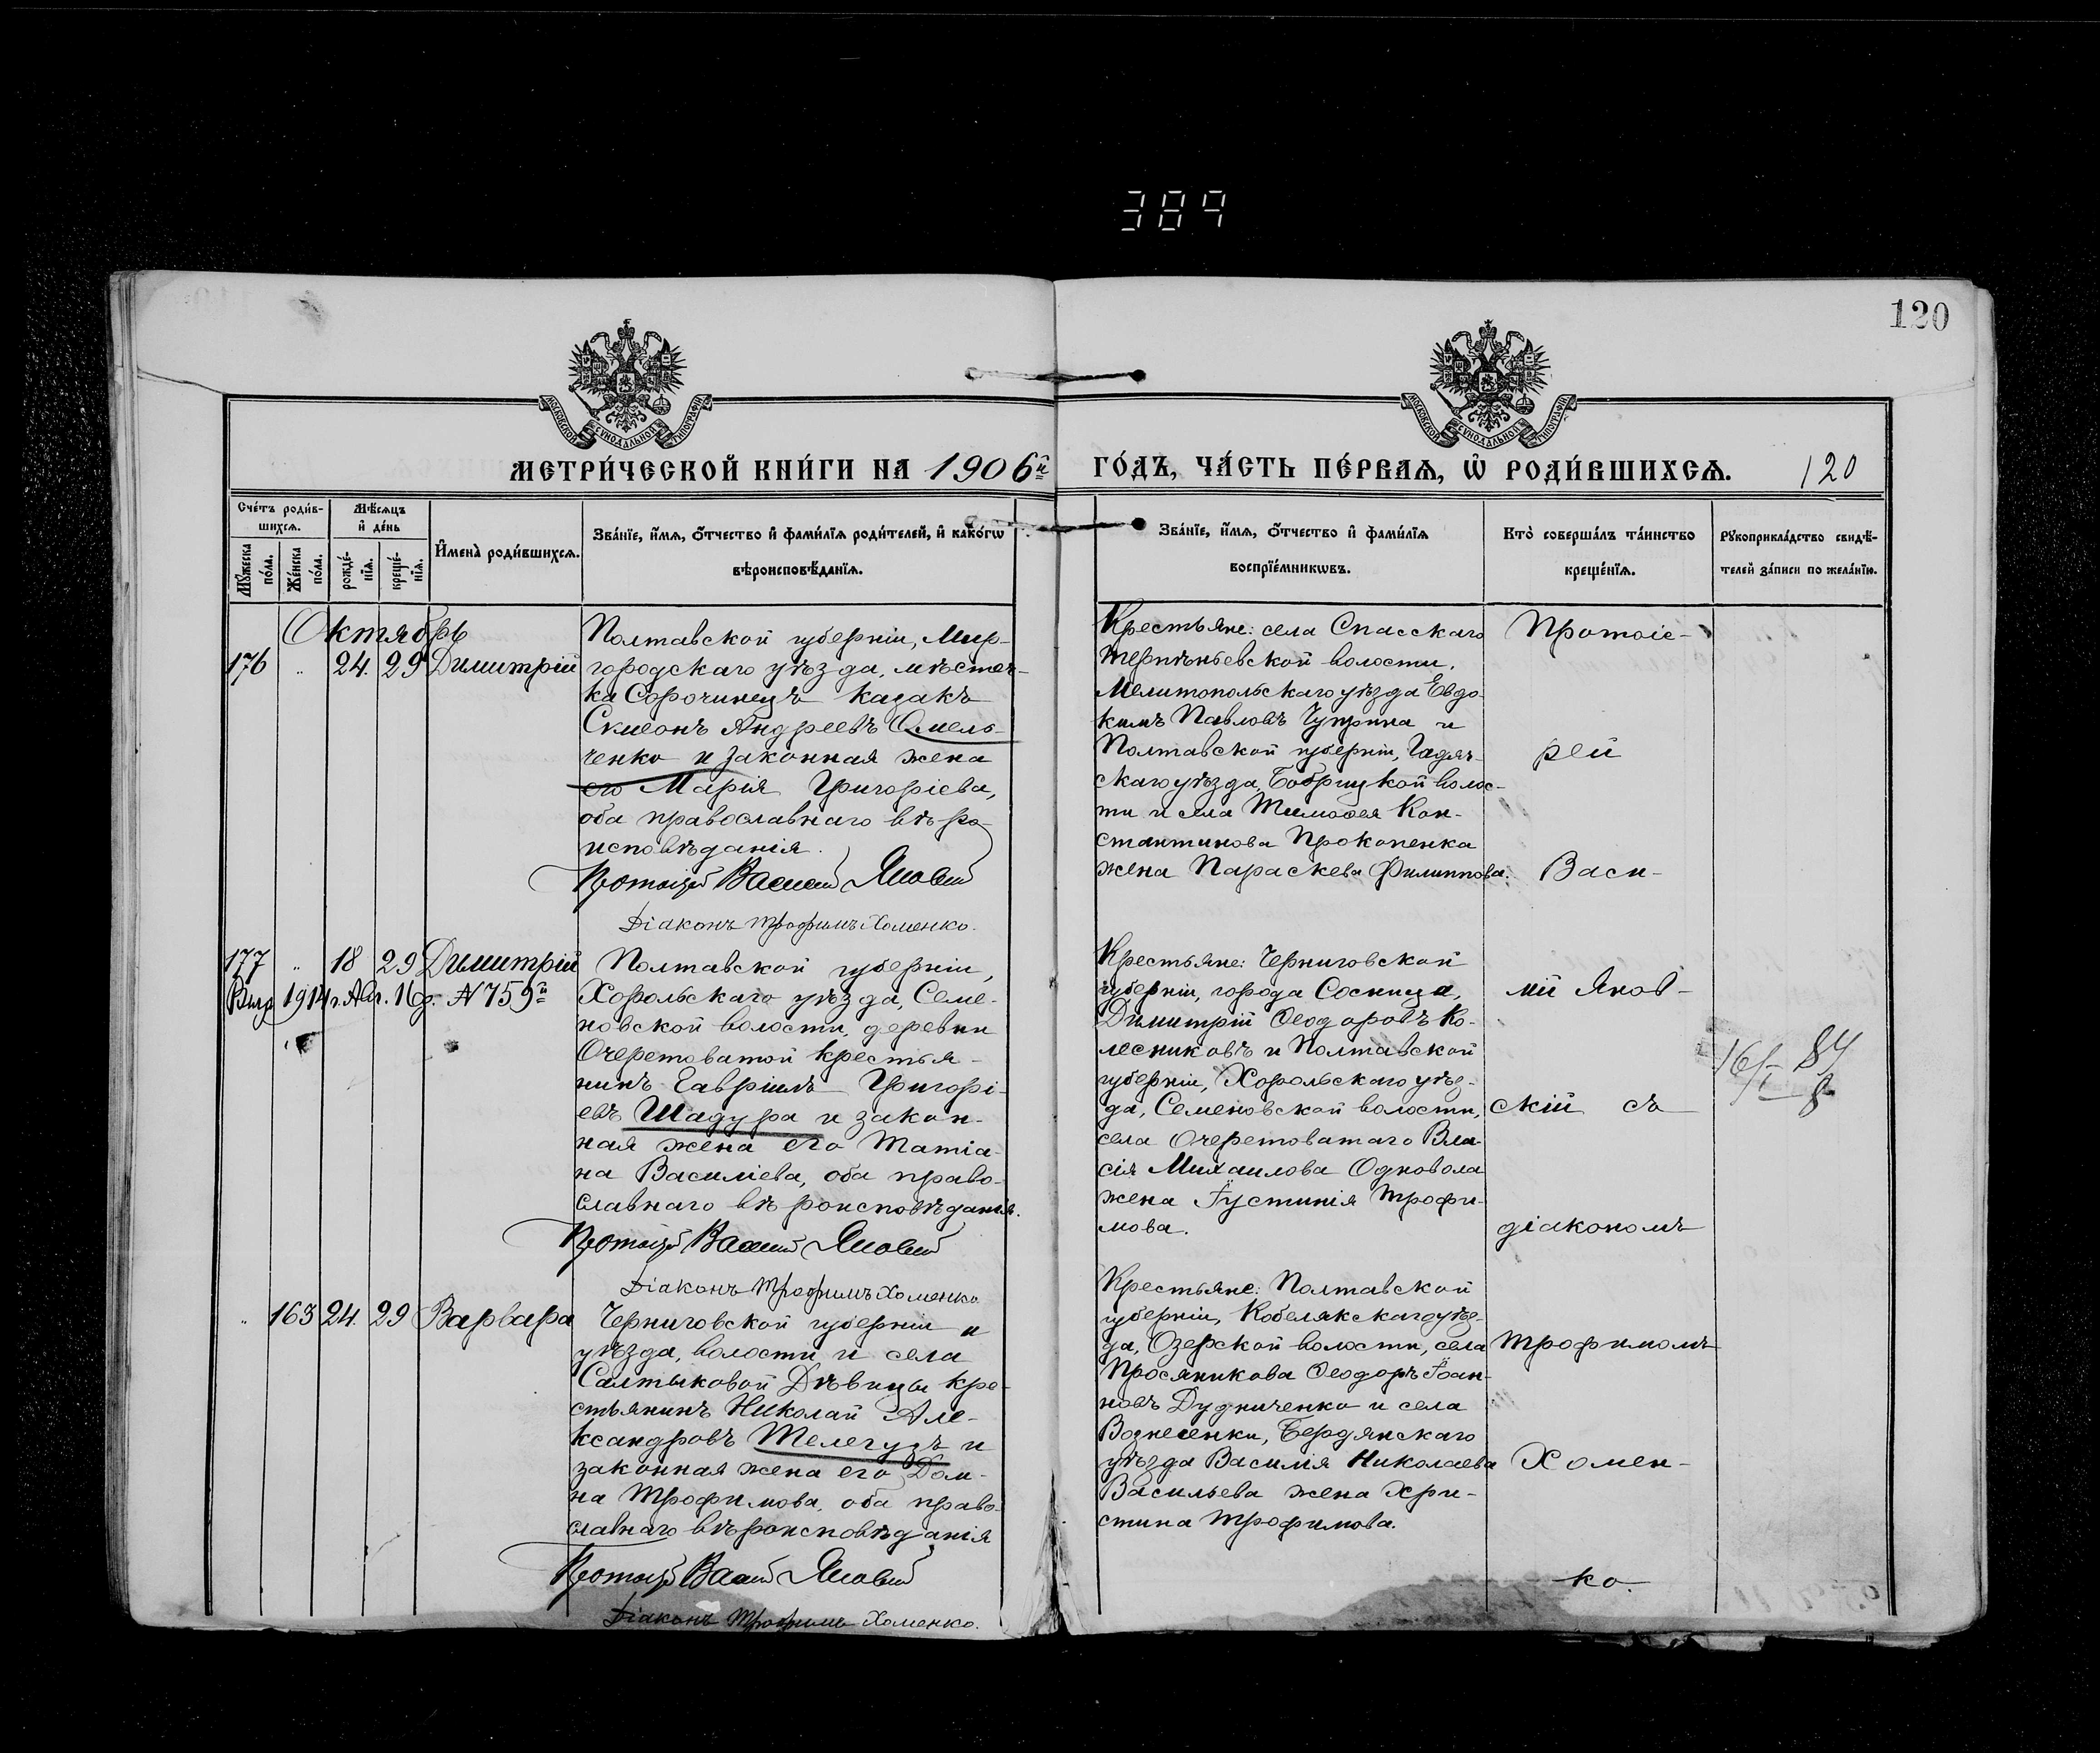 389
120
МОСКОВСКОЙ СѴНОДАЛЬНОЙ ТИПОГРАФІИ
МОСКОВСКОЙ СѴНОДАЛЬНОЙ ТИПОГРАФІИ
МЕТРИ́ЧЕСКОЙ КНИ́ГИ НА 1906й
ГО́ДЪ, ЧА́СТЬ ПЕ́РВАѦ, Ѡ РОДИ́ВШИХСѦ.
120
Сче́тъ роди́в-
шихсѧ.
Мѣ́сѧцъ
и҆ де́нь
Мꙋ́жеска
по́ла.
Же́нска
по́ла.
рожде́-
нїѧ.
креще́-
нїѧ.
И҆мена̀ роди́вшихсѧ.
Зва́нїе, и҆́мѧ, ѻ҆́тчество и҆ фами́лїѧ роди́телей, и҆ како́гѡ
вѣроисповѣ́данїѧ.
Зва́нїе, и҆́мѧ, ѻ҆́тчество и҆ фами́лїѧ
воспрїе́мникѡвъ.
Кто̀ соверша́лъ та́инство
креще́нїѧ.
Рꙋкоприкла́дство свидѣ́-
телей за́писи по жела́нїю.
Октябрь
176 „ 24. 29 Димитрій
Полтавской губерніи, Мир-
городскаго уѣзда, мѣстеч-
ка Сорочинецъ казакъ
Симеонъ Андреевъ Омель-
ченко и законная жена
его Марія Григоріева,
оба православнаго вѣро-
исповѣданія.
Протоіерей Василій Яновскій
Діаконъ Трофимъ Хоменко.
Крестьяне: села Спасскаго
Терпѣньевской волости,
Мелитопольскаго уѣзда Евдо-
кимъ Павловъ Чуприна и
Полтавской губерніи, Гадяч-
скаго уѣзда, Бобрицкой волос-
ти и села Тимофея Кон-
стантинова Прокопенка
жена Параскева Филиппова.
177 „ 18 29 Димитрій
Выд. 1914 г. Авг. 16 д. № 759й
Полтавской губерніи,
Хорольскаго уѣзда, Семе-
новской волости, деревни
Очеретоватой крестья-
нинъ Гавріилъ Григорі-
евъ Шадура и закон-
ная жена его Татіа-
на Василіева, оба право-
славнаго вѣроисповѣданія.
Протоіерей Василій Яновскій
Діаконъ Трофимъ Хоменко
Крестьяне: Черниговской
губерніи, города Сосница,
Димитрій Ѳеодоровъ Ко-
лесниковъ и Полтавской
губерніи, Хорольскаго уѣз-
да, Семеновской волости,
села Очеретоватаго Вла-
сія Михаилова Одновола
жена Іустинія Трофи-
мова.
„ 163 24. 29 Варвара
Черниговской губерніи и
уѣзда, волости и села
Салтыковой Дѣвицы кре-
стьянинъ Николай Але-
ксандровъ Телегузъ и
законная жена его Дом-
на Трофимова, оба право-
славнаго вѣроисповѣданія
Протоіерей Василій Яновскій
Діаконъ Трофимъ Хоменко.
Крестьяне: Полтавской
губерніи, Кобелякскаго уѣз-
да, Озерской волости, села
Просяникова Ѳеодоръ Іоан-
новъ Дудниченко и села
Вознесенки, Бердянскаго
уѣзда Василія Николаева
Васильева жена Хри-
стина Трофимова.
Протоіе-
рей
Васи-
лій Янов-
скій съ
діакономъ
Трофимомъ
Хомен-
ко.